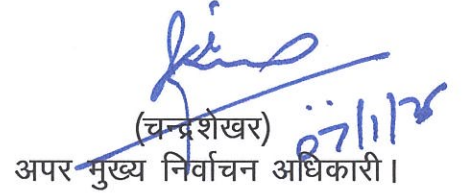 (चन्द्रशेखर)
07/1/26
अपर मुख्य निर्वाचन अधिकारी।